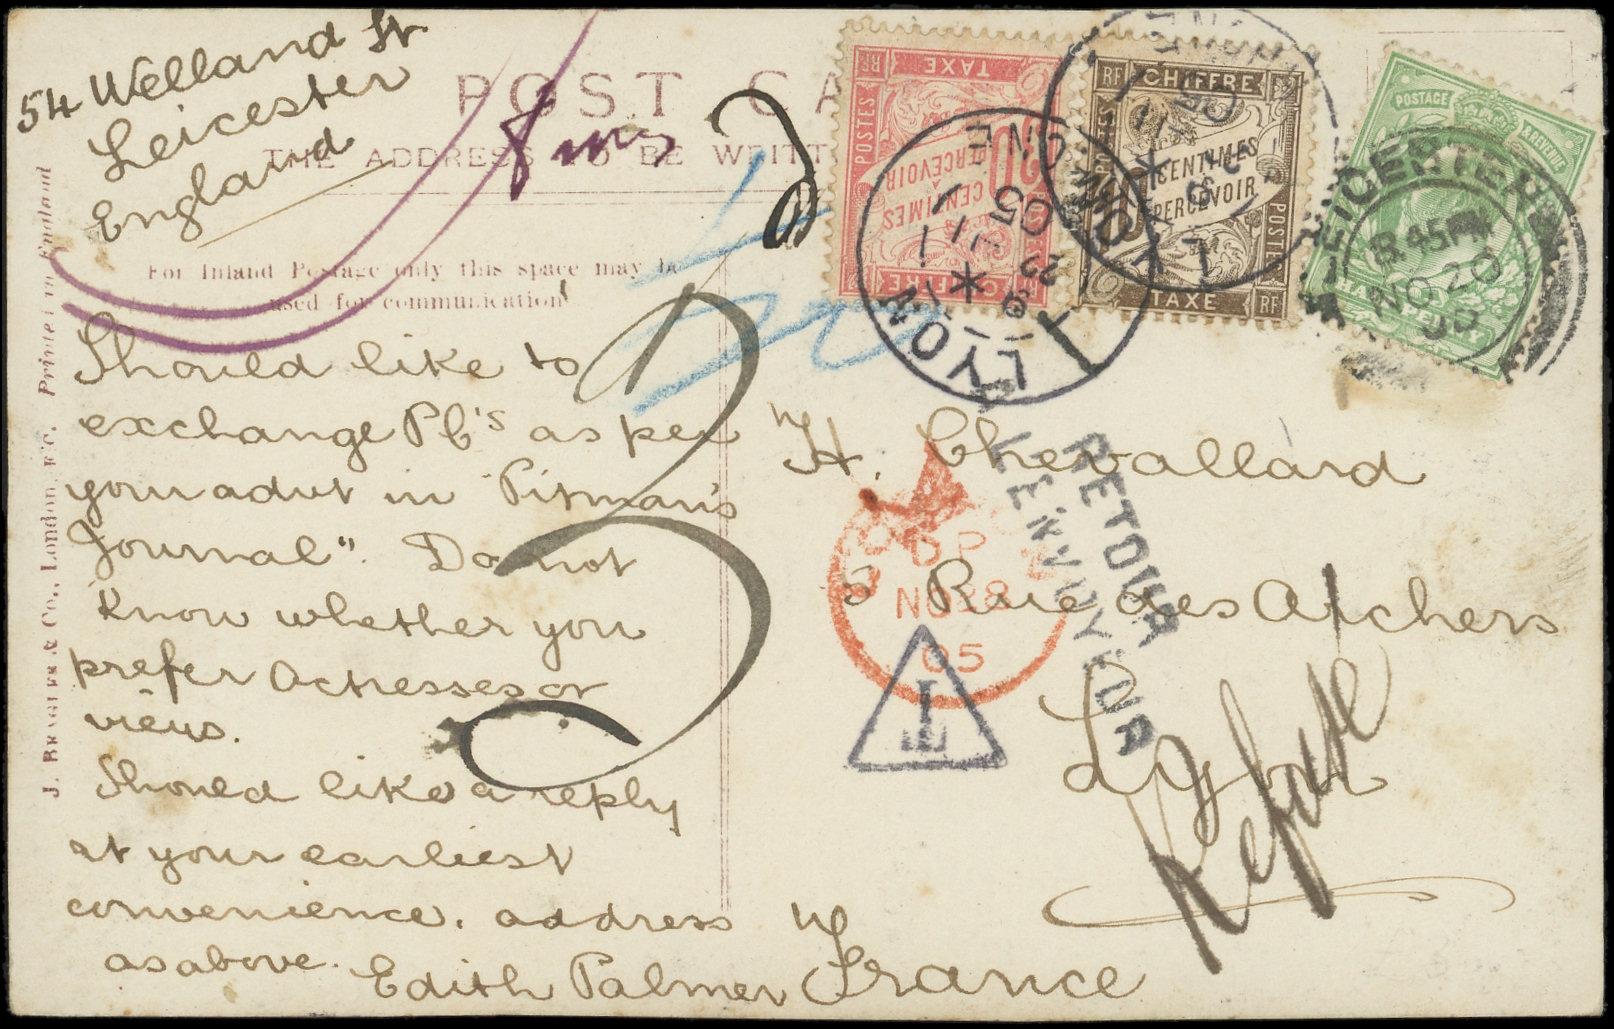 54 Welland St
Leicester
England
POST CA
THE ADDRESS TO BE WRITT
For Inland Postage only this space may be
used for communication
Printed in England
J. & Co., London, E.C.
Should like to
exchange P.C's as per
your advt in "Pitman's
Journal". Do not
know whether you
prefer Actresses or
views.
Should like a reply
at your earliest
convenience. address
as above. Edith Palmer
H. Chevallard
5 Rue des Archers
Lyon
France
Refusé
RETOUR
A L'ENVOYEUR
T
D P
NO 28
05
CHIFFRE
TAXE
POSTES
30
CENTIMES
À
PERCEVOIR
RF
CHIFFRE
TAXE
POSTES
CENTIMES
À
PERCEVOIR
RF
LYON
RHONE
05
22
POSTAGE & REVENUE
HALFPENNY
LEICESTER
8.45PM
NO 20
05